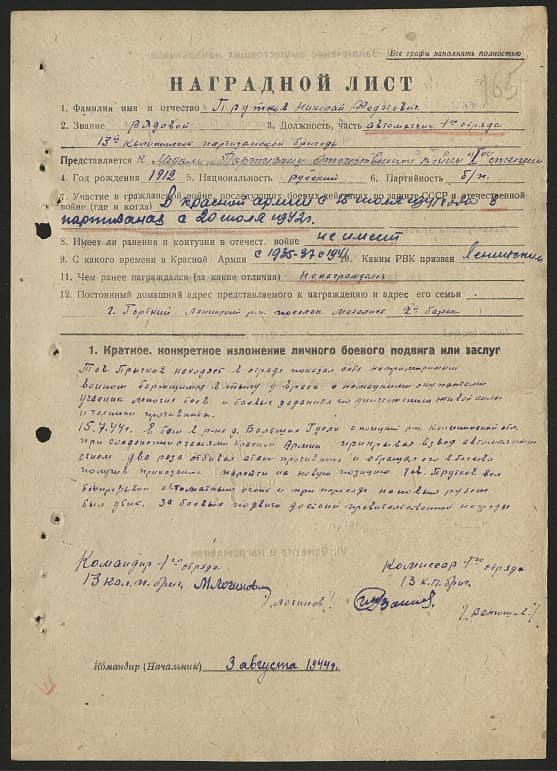 Все графы заполнять полностью
165
НАГРАДНОЙ ЛИСТ
1. Фамилия имя и отчество Прутков Николай Федотович
2. Звание рядовой 3. Должность, часть автоматчик 1го отряда
13ой Калининской партизанской бригады
Представляется к Медали "Партизану Отечественной войны" I ой степени
4. Год рождения 1912 5. Национальность русский 6. Партийность б/п.
7. Участие в гражданской войне, последующих боевых действиях по защите СССР и отечественной
войне (где и когда) В красной армии с июля 1941 года в
партизанах с 20 июля 1942 г.
8. Имеет ли ранения и контузии в отечест. войне не имеет
9. С какого времени в Красной Армии с 1935-37 с 1941 10. Каким РВК призван Ленинским
11. Чем ранее награждался (за какие отличия) Ненаграждался
12. Постоянный домашний адрес представляемого к награждению и адрес его семьи
г. Горький Ленинский р-н. поселок барак
1. Краткое, конкретное изложение личного боевого подвига или заслуг
Тов. Прутков находясь в отряде показал себя непримиримым
воином борющимся в тылу у врага с немецкими оккупантами
участник многих боев и боевых заданий по уничтожению живой силы
и техники противника.
15.7.44г. в бою в р-не д. Большие Гусли Калининской обл.
при соединении с частями Красной Армии прикрывая взвод автоматным
огнем два раза отбивал атаки противника и обращал его в бегство
получив приказание перейти на новую позицию тов. Прутков вел
автоматный огонь и при переходе на новый рубеж
был убит. За боевые подвиги достоин правительственной награды
Командир 1го отряда Комиссар 1го отряда
13 кал. п. бриг. 13 к.п. бриг.
/Логинов/
Командир (Начальник) 3 августа 1944г.